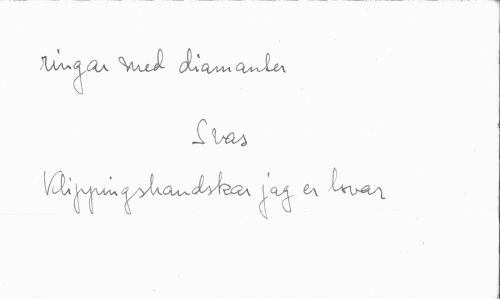 ringar med diamanter
Svar
Klippingshandskar jag er lovar